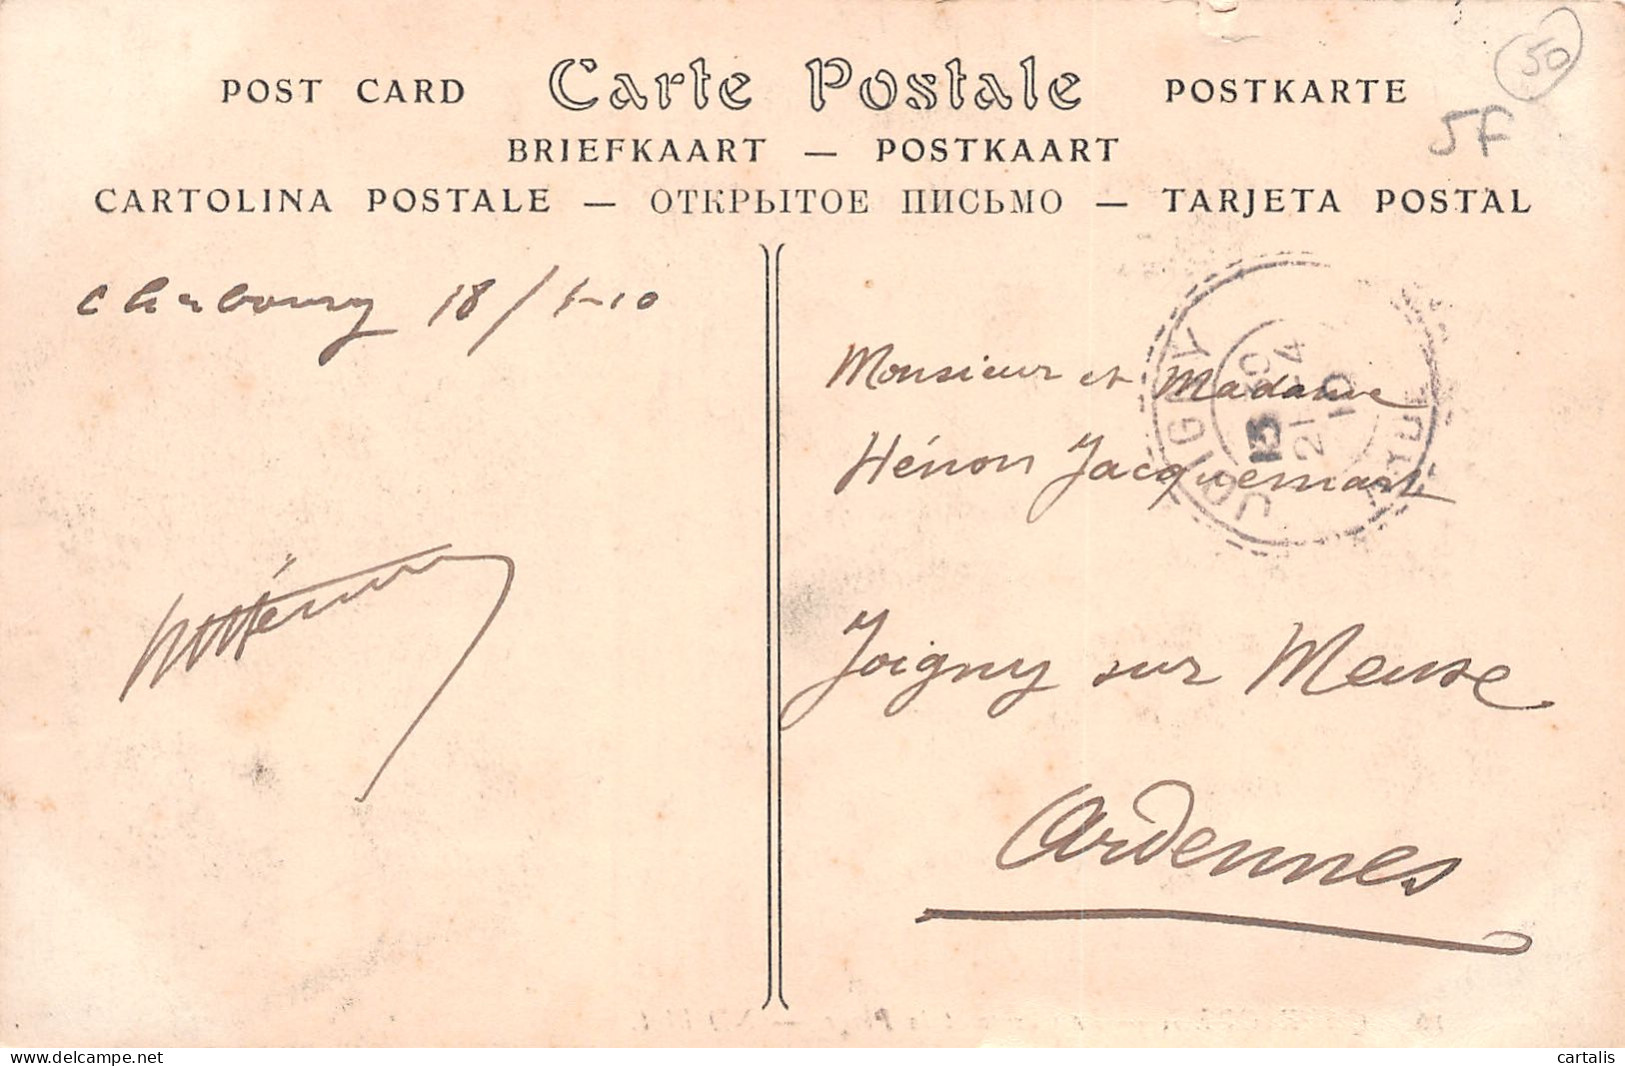 50
5F
POST CARD Carte Postale POSTKARTE
BRIEFKAART — POSTKAART
CARTOLINA POSTALE — ОТКРЫТОЕ ПИСЬМО — TARJETA POSTAL
Cherbourg 18/4-10
Monsieur et Madame
Hénon Jacquemart
Joigny sur Meuse
Ardennes
JOIGNY
21-4
10
cartalis